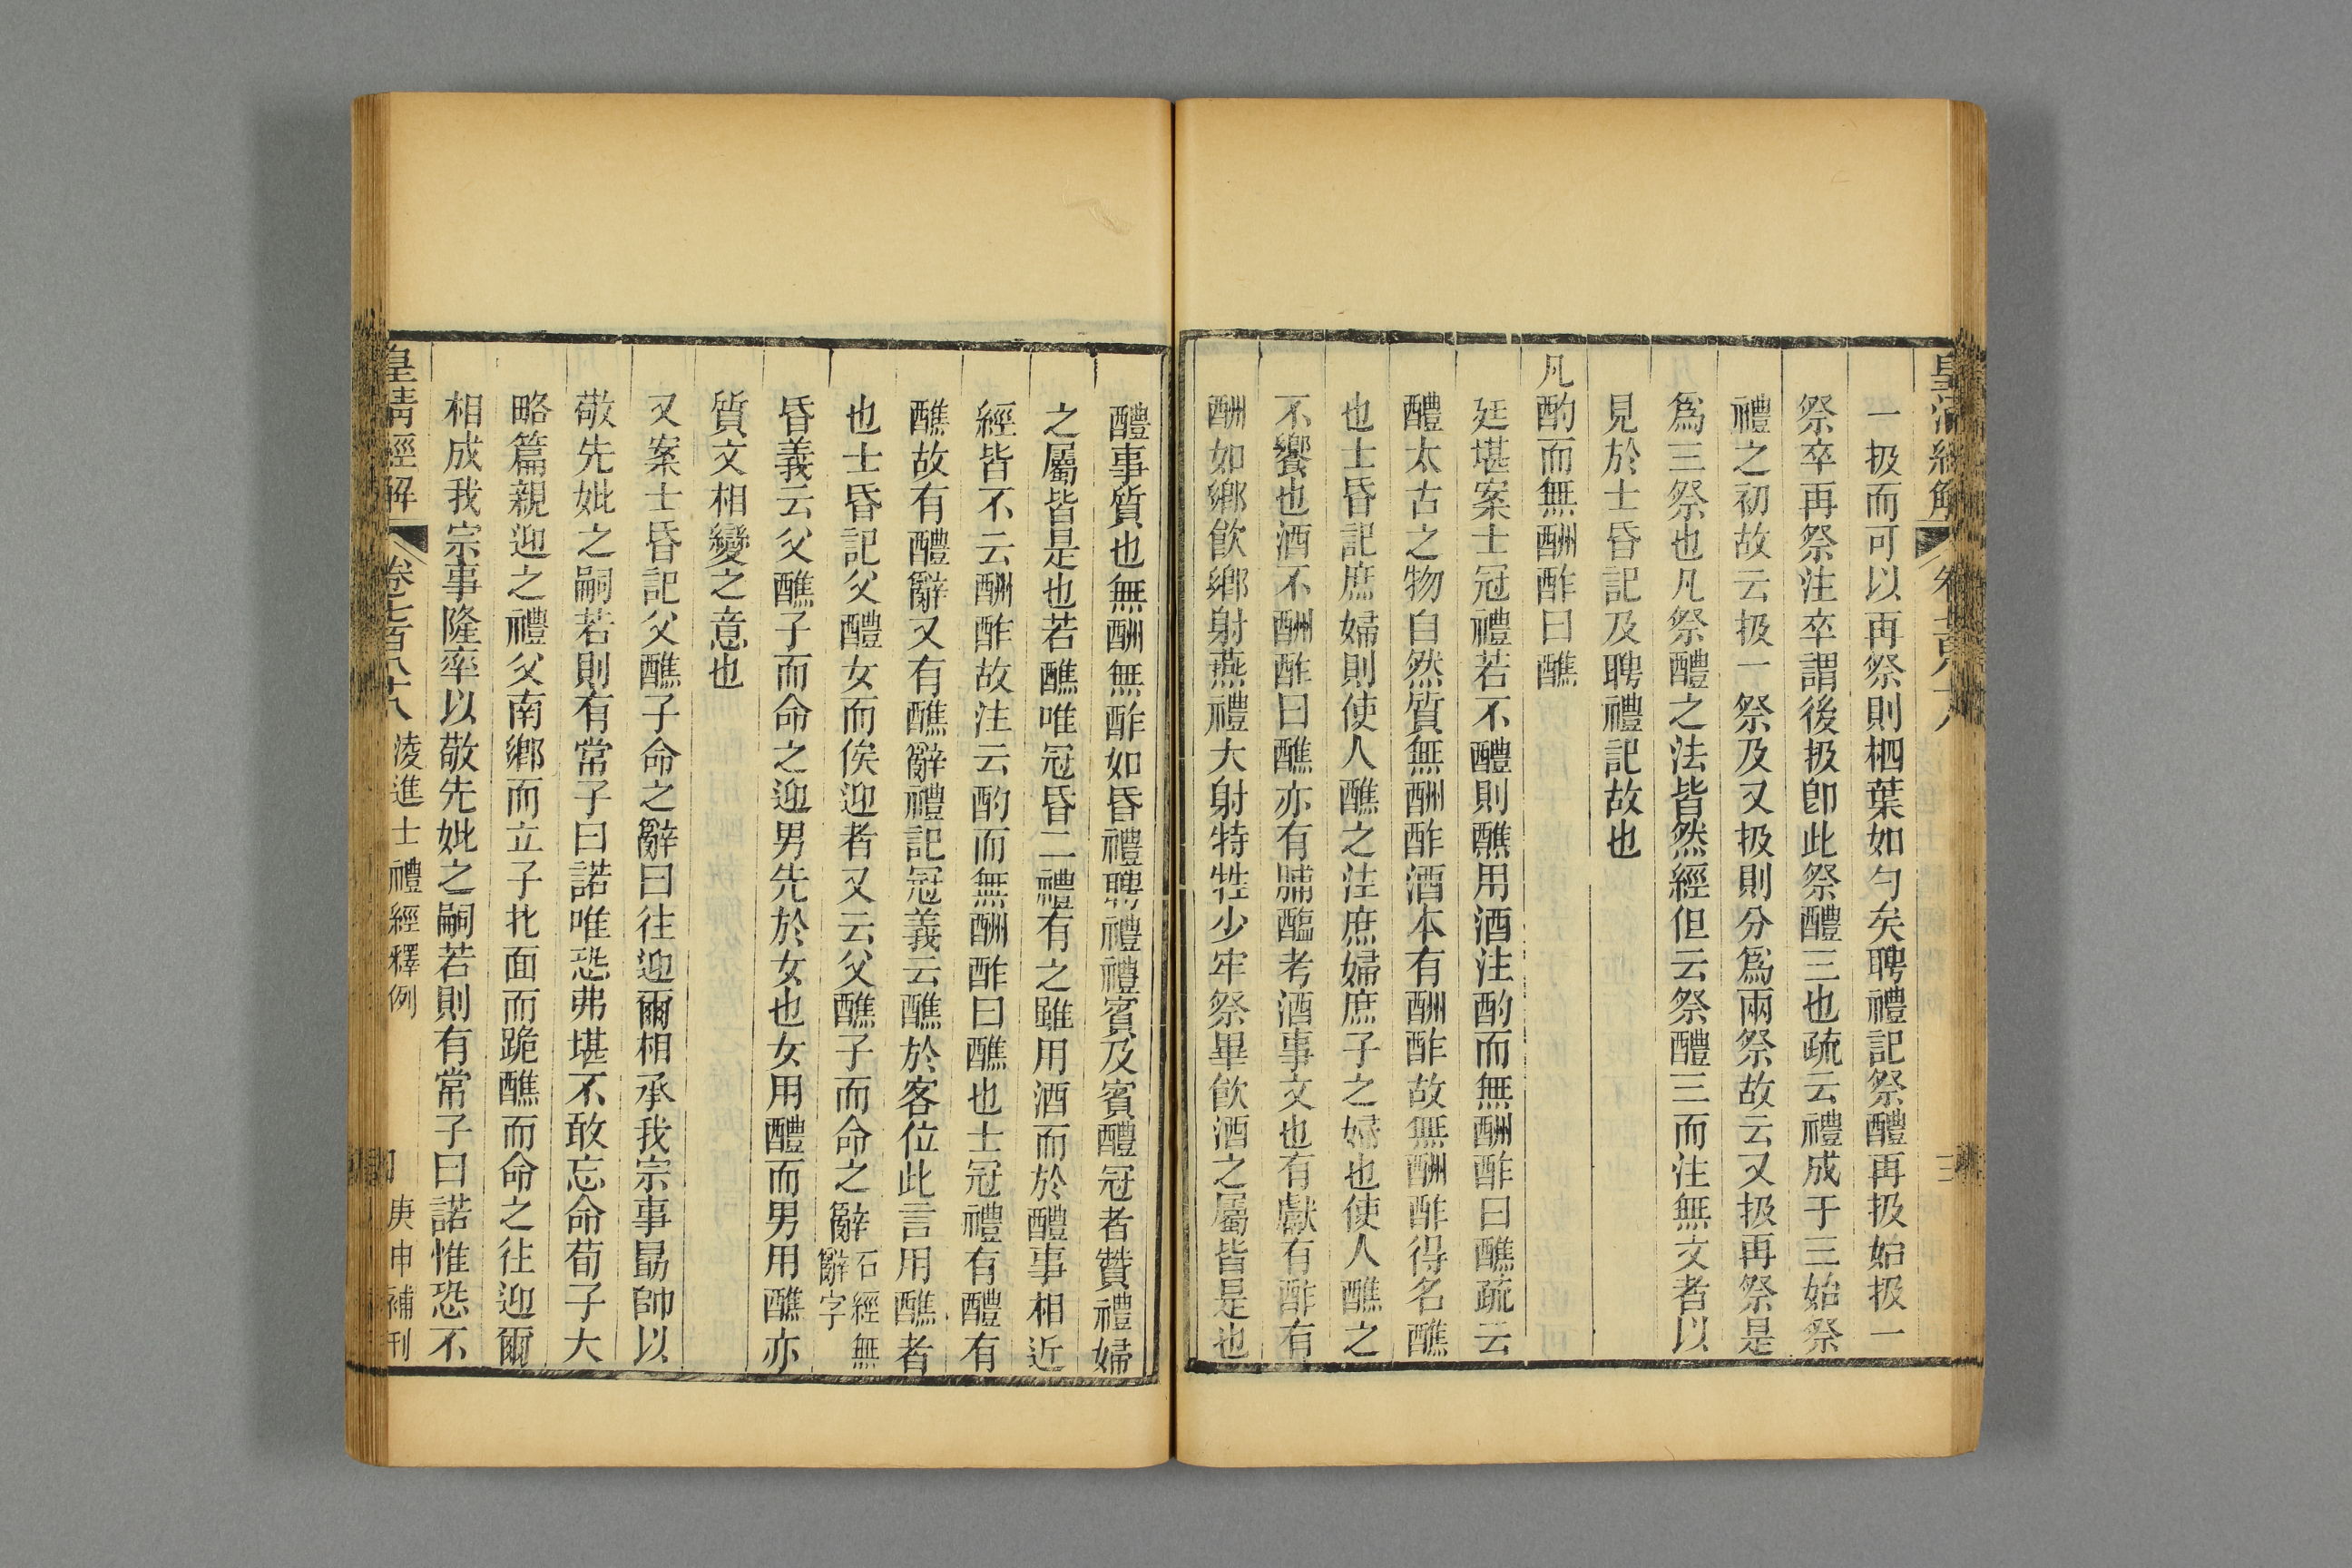 皇清經解
一扱而可以再祭則柶葉如勺矣聘禮記祭醴再扱始扱一
祭卒再祭注卒謂後扱卽此祭醴三也疏云禮成于三始祭
禮之初故云扱一祭及又扱則分爲兩祭故云又扱再祭是
爲三祭也凡祭醴之法皆然經但云祭醴三而注無文者以
見於士昏記及聘禮記故也
凡酌而無酬酢曰醮
廷堪案士冠禮若不醴則醮用酒注酌而無酬酢曰醮疏云
醴太古之物自然質無酬酢酒本有酬酢故無酬酢得名醮
也士昏記庶婦則使人醮之注庶婦庶子之婦也使人醮之
不饗也酒不酬酢曰醮亦有脯醢考酒事文也有獻有酢有
酬如鄉飲鄉射燕禮大射特牲少牢祭畢飲酒之屬皆是也
醴事質也無酬無酢如昏禮聘禮禮賓及賓醴冠者贊禮婦
之屬皆是也若醮唯冠昏二禮有之雖用酒而於醴事相近
經皆不云酬酢故注云酌而無酬酢曰醮也士冠禮有醴有
醮故有醴辭又有醮辭禮記冠義云醮於客位此言用醮者
也士昏記父醴女而俟迎者又云父醮子而命之辭石經無
辭字
昏義云父醮子而命之迎男先於女也女用醴而男用醮亦
質文相變之意也
又案士昏記父醮子命之辭曰往迎爾相承我宗事勗帥以
敬先妣之嗣若則有常子曰諾唯恐弗堪不敢忘命荀子大
略篇親迎之禮父南鄉而立子北面而跪醮而命之往迎爾
相成我宗事隆率以敬先妣之嗣若則有常子曰諾惟恐不
皇清經解 卷七百八十八 淩進士禮經釋例 庚申補刊